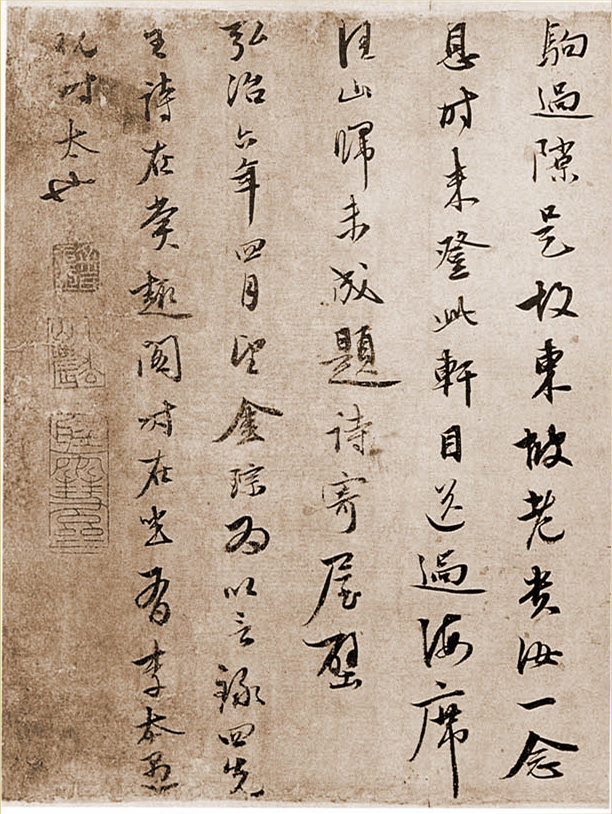 駒過隙是故東坡老貴汝一念
息時來登此軒目送過海席
佳山歸未成題詩寄屋壁
弘治六年四月望金琮為以言錄四先
生詩在賞趣閣時在坐者李太愚
祝時太也